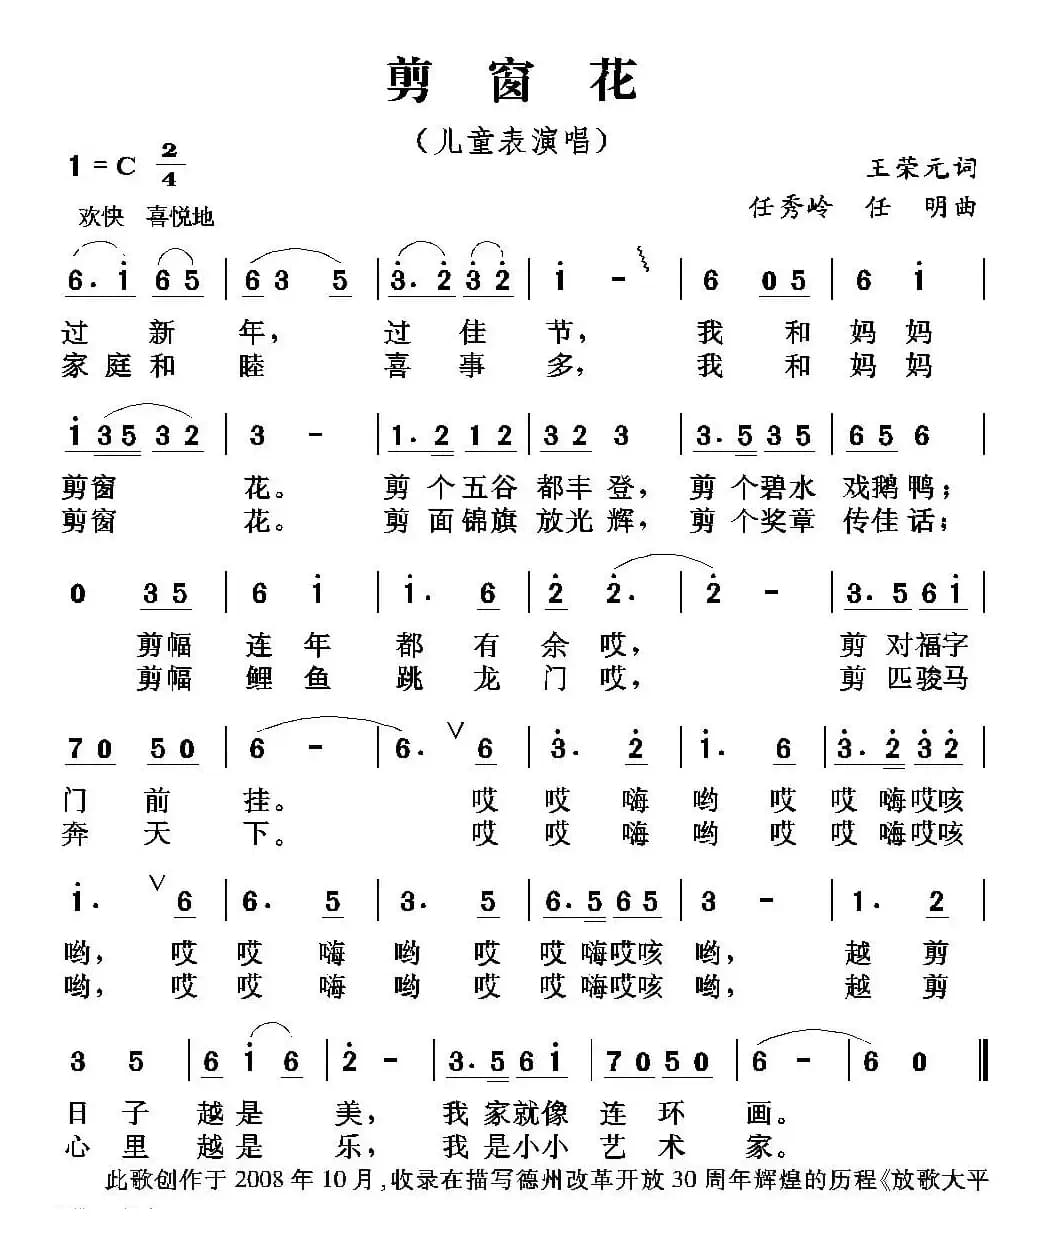 剪 窗 花
（儿童表演唱）
1 = C 2/4
王荣元词
欢快 喜悦地
任秀岭 任 明曲
6. i 6 5 | 6 3 5 | 3. 2 3 2 | i - | 6 0 5 | 6 i |
过 新 年， 过 佳 节， 我 和 妈 妈
家 庭 和 睦 喜 事 多， 我 和 妈 妈
i 3 5 3 2 | 3 - | 1. 2 1 2 | 3 2 3 | 3. 5 3 5 | 6 5 6 |
剪窗 花。 剪 个 五谷 都丰 登， 剪 个碧水 戏鹅 鸭；
剪窗 花。 剪 面 锦旗 放光 辉， 剪 个奖章 传佳 话；
0 3 5 | 6 i | i. 6 | 2 2. | 2 - | 3. 5 6 i |
剪幅 连 年 都 有 余 哎， 剪 对福字
剪幅 鲤 鱼 跳 龙 门 哎， 剪 匹骏马
7 0 5 0 | 6 - | 6. V 6 | 3. 2 | i. 6 | 3. 2 3 2 |
门 前 挂。 哎 哎 嗨 哟 哎 哎 嗨哎咳
奔 天 下。 哎 哎 嗨 哟 哎 哎 嗨哎咳
i. V 6 | 6. 5 | 3. 5 | 6. 5 6 5 | 3 - | 1. 2 |
哟， 哎 哎 嗨 哟 哎 哎 嗨哎咳 哟， 越 剪
哟， 哎 哎 嗨 哟 哎 哎 嗨哎咳 哟， 越 剪
3 5 | 6 i 6 | 2 - | 3. 5 6 i | 7 0 5 0 | 6 - | 6 0 ‖
日 子 越 是 美， 我 家就像 连 环 画。
心 里 越 是 乐， 我 是小小 艺 术 家。
此歌创作于 2008 年 10 月，收录在描写德州改革开放 30 周年辉煌的历程《放歌大平